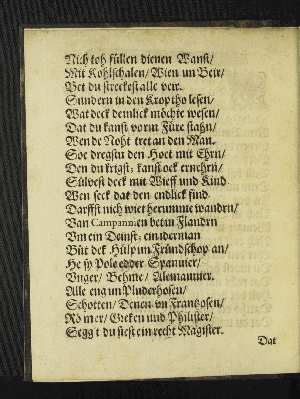 Nich toh füllen dienen Wanst/
Mit Kohlschalen/ Wien un Beir/
Vet du streckest alle veir.
Sundern in den Krop tho lesen/
Wat deck denlick möchte wesen/
Dat du kanst vorm Füre stahn/
Wen de Noht tret an den Man.
Soe dregstu den Hoet mit Ehrn/
Den du krigst; kanst ock ernehrn/
Sülvest deck mit Wieff und Kind
Wen seck dat den endlick find.
Darffst nich wiet herümme wandrn/
Van Campannien bet in Flandrn
Um ein Deinst; ein iderman
Büt deck Hülp un Fründschop an/
He sy Pole edder Spannier/
Vnger/ Behme/ Alemannier.
Alle eng un Pluderhosen/
Schotten/ Denen un Frantzosen/
Römer/ Greken und Philister/
Seggt du siest ein recht Magister.
Dat